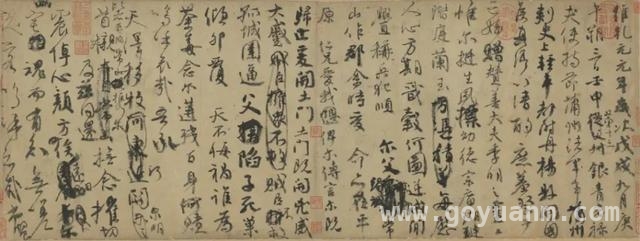 維乾元元年歲次戊戌九月庚
午朔三日壬申第十三叔銀青光祿
夫使持節蒲州諸軍事蒲州
刺史上輕車都尉丹楊縣開國
侯真卿以清酌庶羞祭于
亡姪贈贊善大夫季明之靈曰
惟爾挺生夙標幼德宗廟瑚璉
階庭蘭玉每慰
人心方期戩穀何圖逆賊間
釁稱兵犯順爾父竭誠常
山作郡余時受命亦在平
原仁兄愛我俾爾傳言爾既
歸止爰開土門土門既開凶威
大蹙賊臣擁眾不救
孤城圍逼父陷子死巢
傾卵覆天不悔禍誰為
荼毒念爾遘殘百身何贖
嗚呼哀哉吾承
天澤移牧河關泉明
比者再陷常山攜爾
首櫬及茲同還撫念摧切
震悼心顏方俟
魂而有知無嗟
久客嗚呼哀哉尚饗
www.goyuanm.com